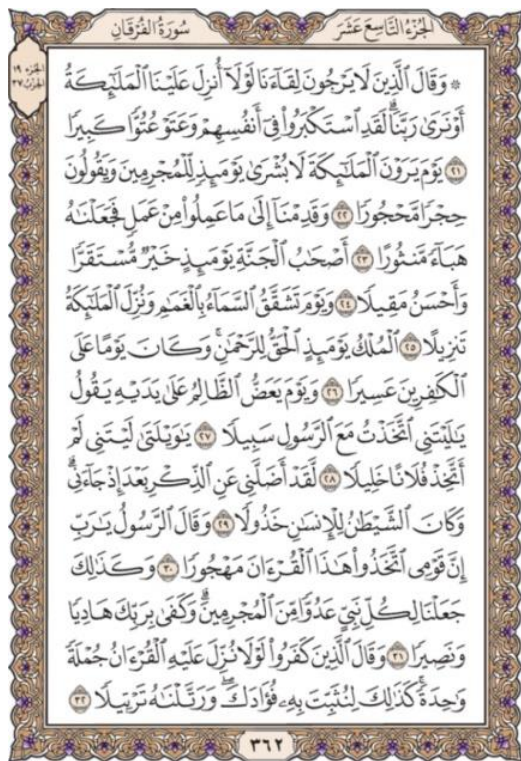 الجزء التاسع عشر
سورة الفرقان
الجزء ١٩
الحزب ٣٧
۞ وَقَالَ ٱلَّذِينَ لَا يَرْجُونَ لِقَآءَنَا لَوْلَآ أُنزِلَ عَلَيْنَا ٱلْمَلَٰٓئِكَةُ
أَوْ نَرَىٰ رَبَّنَاۗ لَقَدِ ٱسْتَكْبَرُوا۟ فِىٓ أَنفُسِهِمْ وَعَتَوْ عُتُوًّا كَبِيرًا
٢١ يَوْمَ يَرَوْنَ ٱلْمَلَٰٓئِكَةَ لَا بُشْرَىٰ يَوْمَئِذٍ لِّلْمُجْرِمِينَ وَيَقُولُونَ
حِجْرًا مَّحْجُورًا ٢٢ وَقَدِمْنَآ إِلَىٰ مَا عَمِلُوا۟ مِنْ عَمَلٍ فَجَعَلْنَٰهُ
هَبَآءً مَّنثُورًا ٢٣ أَصْحَٰبُ ٱلْجَنَّةِ يَوْمَئِذٍ خَيْرٌ مُّسْتَقَرًّا
وَأَحْسَنُ مَقِيلًا ٢٤ وَيَوْمَ تَشَقَّقُ ٱلسَّمَآءُ بِٱلْغَمَٰمِ وَنُزِّلَ ٱلْمَلَٰٓئِكَةُ
تَنزِيلًا ٢٥ ٱلْمُلْكُ يَوْمَئِذٍ ٱلْحَقُّ لِلرَّحْمَٰنِۚ وَكَانَ يَوْمًا عَلَى
ٱلْكَٰفِرِينَ عَسِيرًا ٢٦ وَيَوْمَ يَعَضُّ ٱلظَّالِمُ عَلَىٰ يَدَيْهِ يَقُولُ
يَٰلَيْتَنِى ٱتَّخَذْتُ مَعَ ٱلرَّسُولِ سَبِيلًا ٢٧ يَٰوَيْلَتَىٰ لَيْتَنِى لَمْ
أَتَّخِذْ فُلَانًا خَلِيلًا ٢٨ لَّقَدْ أَضَلَّنِى عَنِ ٱلذِّكْرِ بَعْدَ إِذْ جَآءَنِىۗ
وَكَانَ ٱلشَّيْطَٰنُ لِلْإِنسَٰنِ خَذُولًا ٢٩ وَقَالَ ٱلرَّسُولُ يَٰرَبِّ
إِنَّ قَوْمِى ٱتَّخَذُوا۟ هَٰذَا ٱلْقُرْءَانَ مَهْجُورًا ٣٠ وَكَذَٰلِكَ
جَعَلْنَا لِكُلِّ نَبِىٍّ عَدُوًّا مِّنَ ٱلْمُجْرِمِينَۗ وَكَفَىٰ بِرَبِّكَ هَادِيًا
وَنَصِيرًا ٣١ وَقَالَ ٱلَّذِينَ كَفَرُوا۟ لَوْلَا نُزِّلَ عَلَيْهِ ٱلْقُرْءَانُ جُمْلَةً
وَٰحِدَةًۚ كَذَٰلِكَ لِنُثَبِّتَ بِهِۦ فُؤَادَكَۖ وَرَتَّلْنَٰهُ تَرْتِيلًا ٣٢
٣٦٢